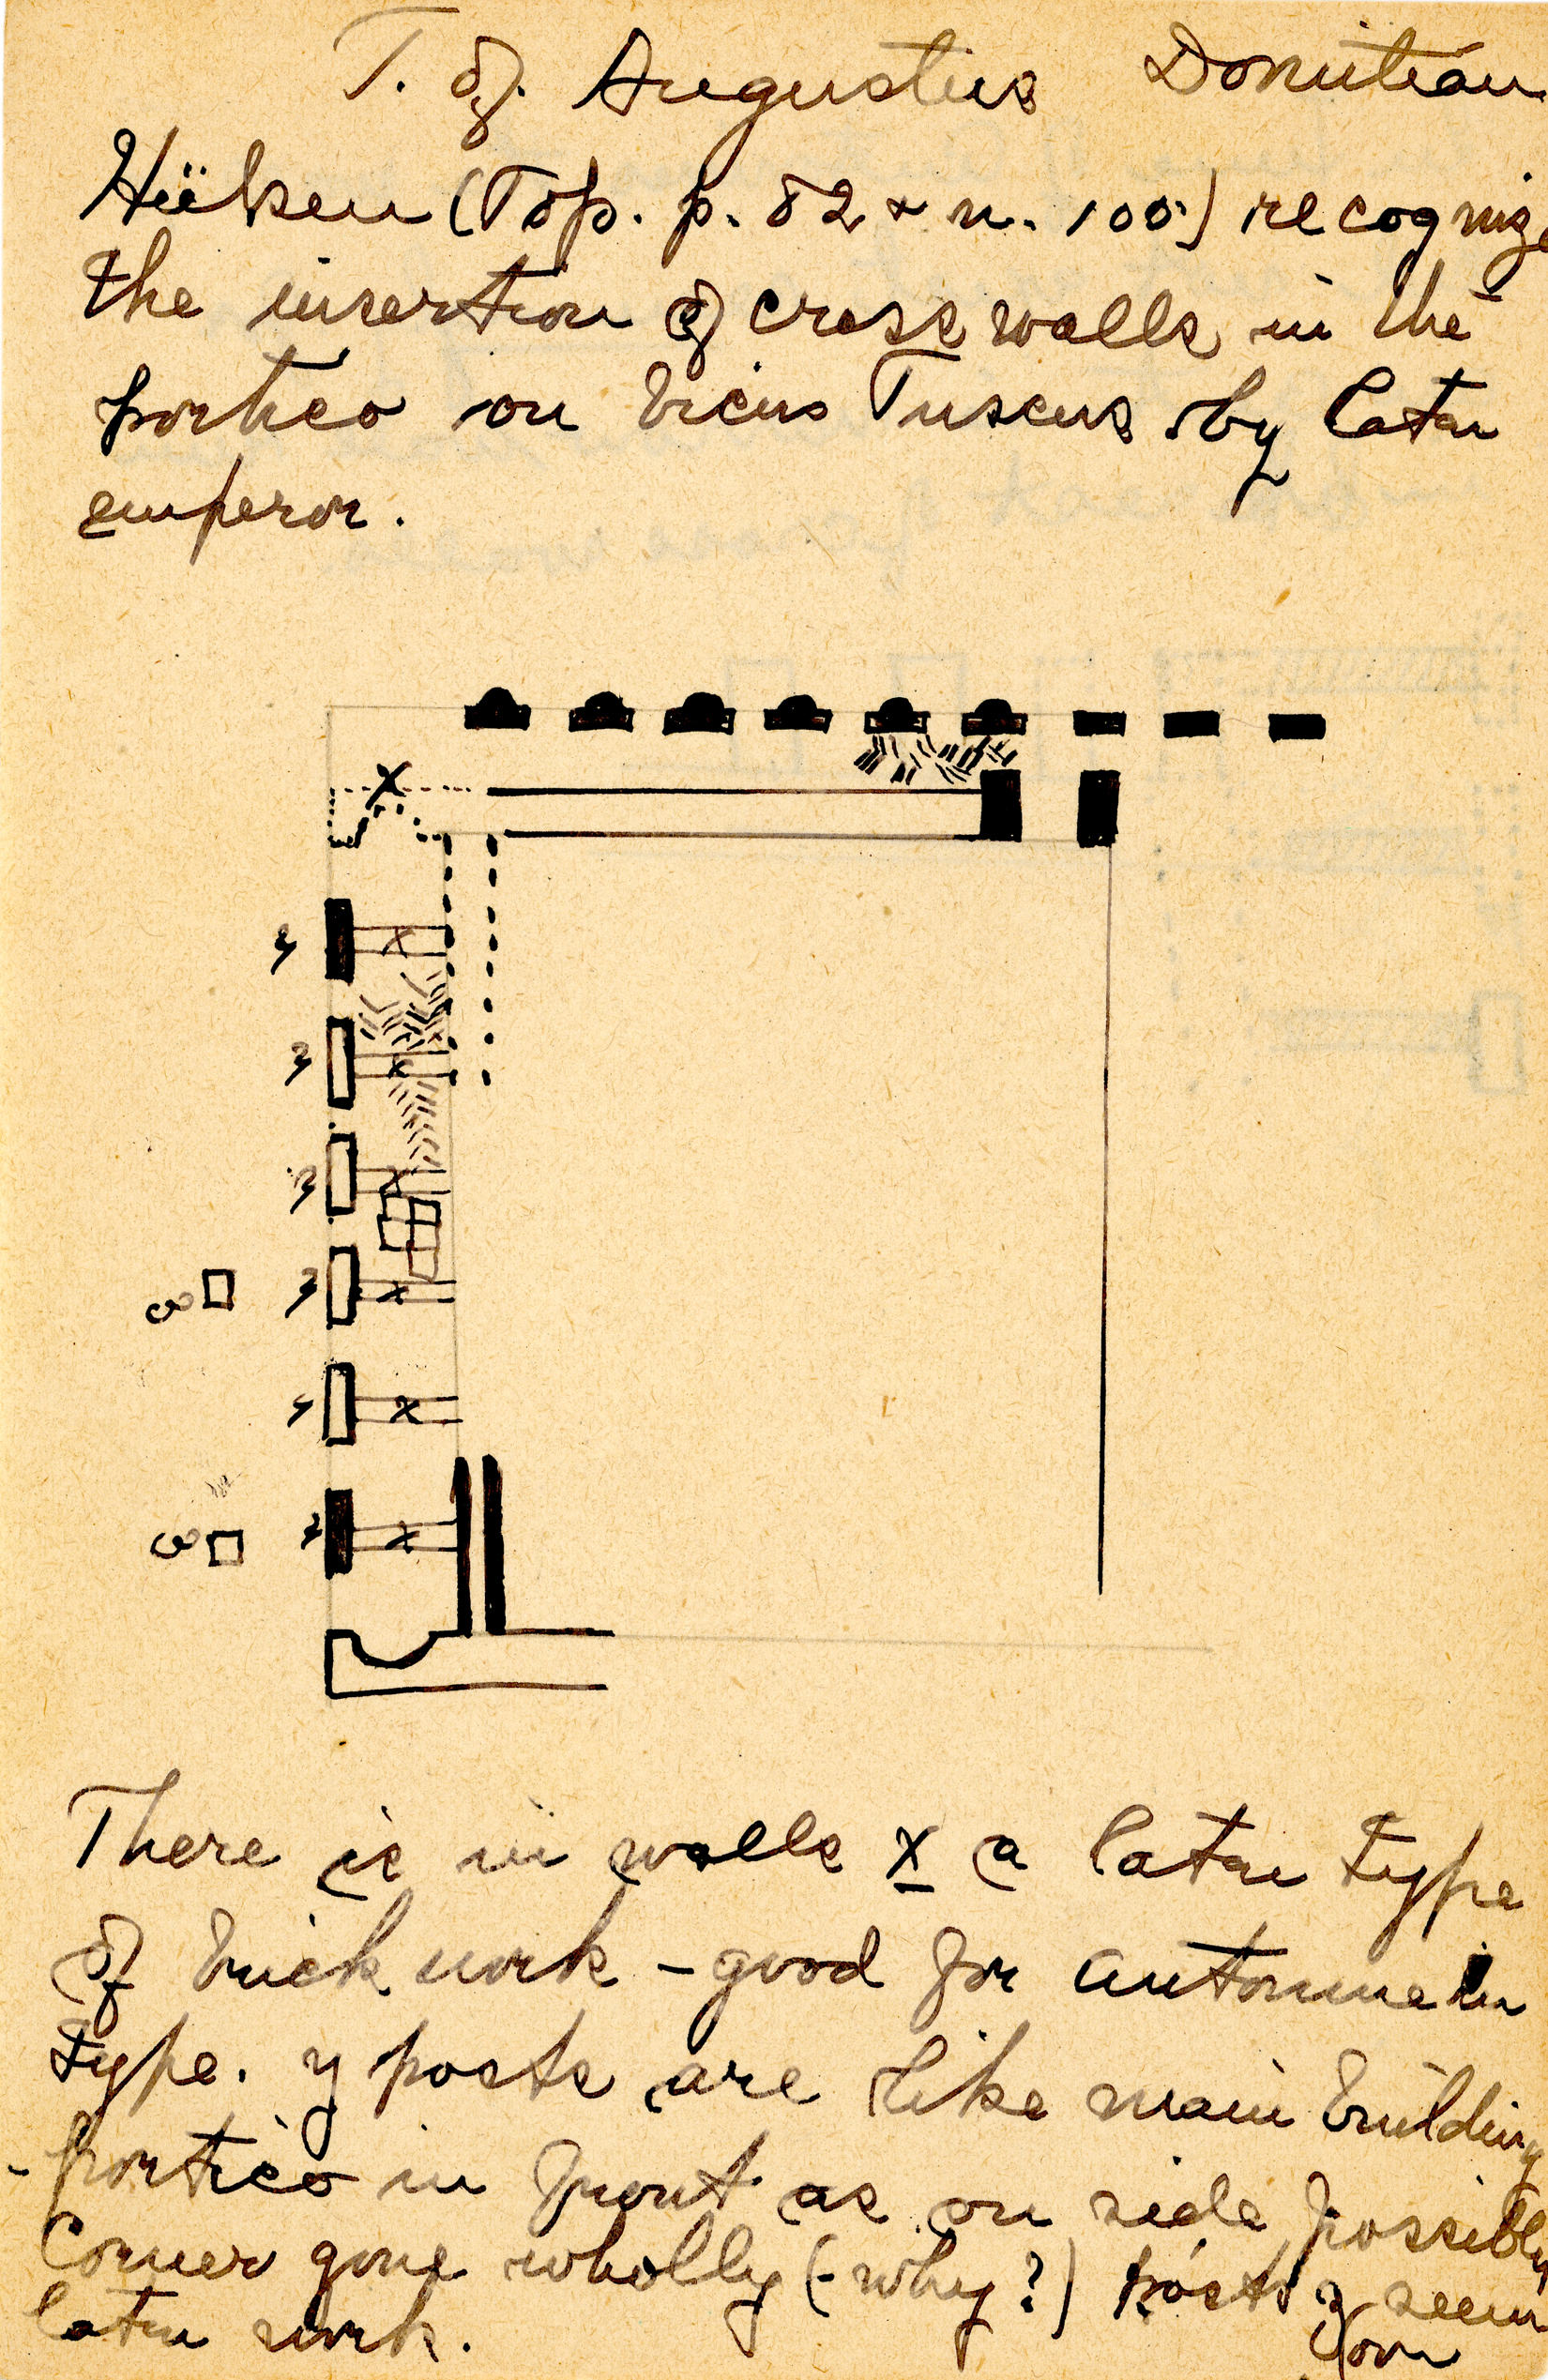 T. of. Augustus Domitian
Hülsen (Top. p. 82 & n. 100) recogniz
the insertion of cross walls in the
portico on Vicus Tuscus by later
emperor.
x
y x
y x
y x
y x
y x
y x
There is in walls x a later type
of brick work - good for Antonine
type. y posts are like main building
- portico in front as on side possibly
Corner gone wholly (- why?) posts z seem
later work.